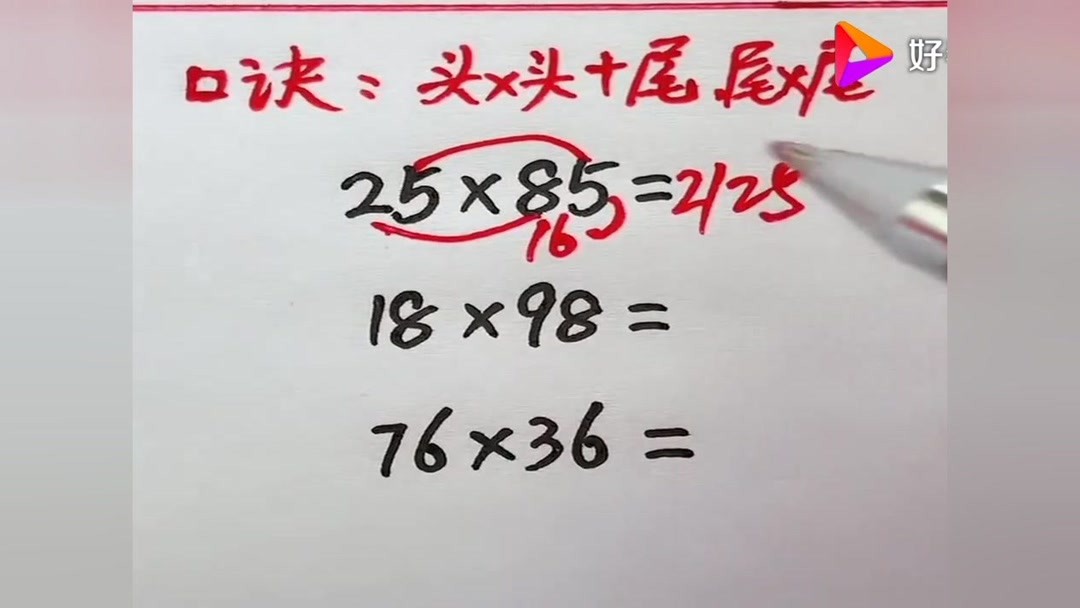 好
口诀：头×头+尾,尾×尾
25×85=2125
16
18×98=
76×36=